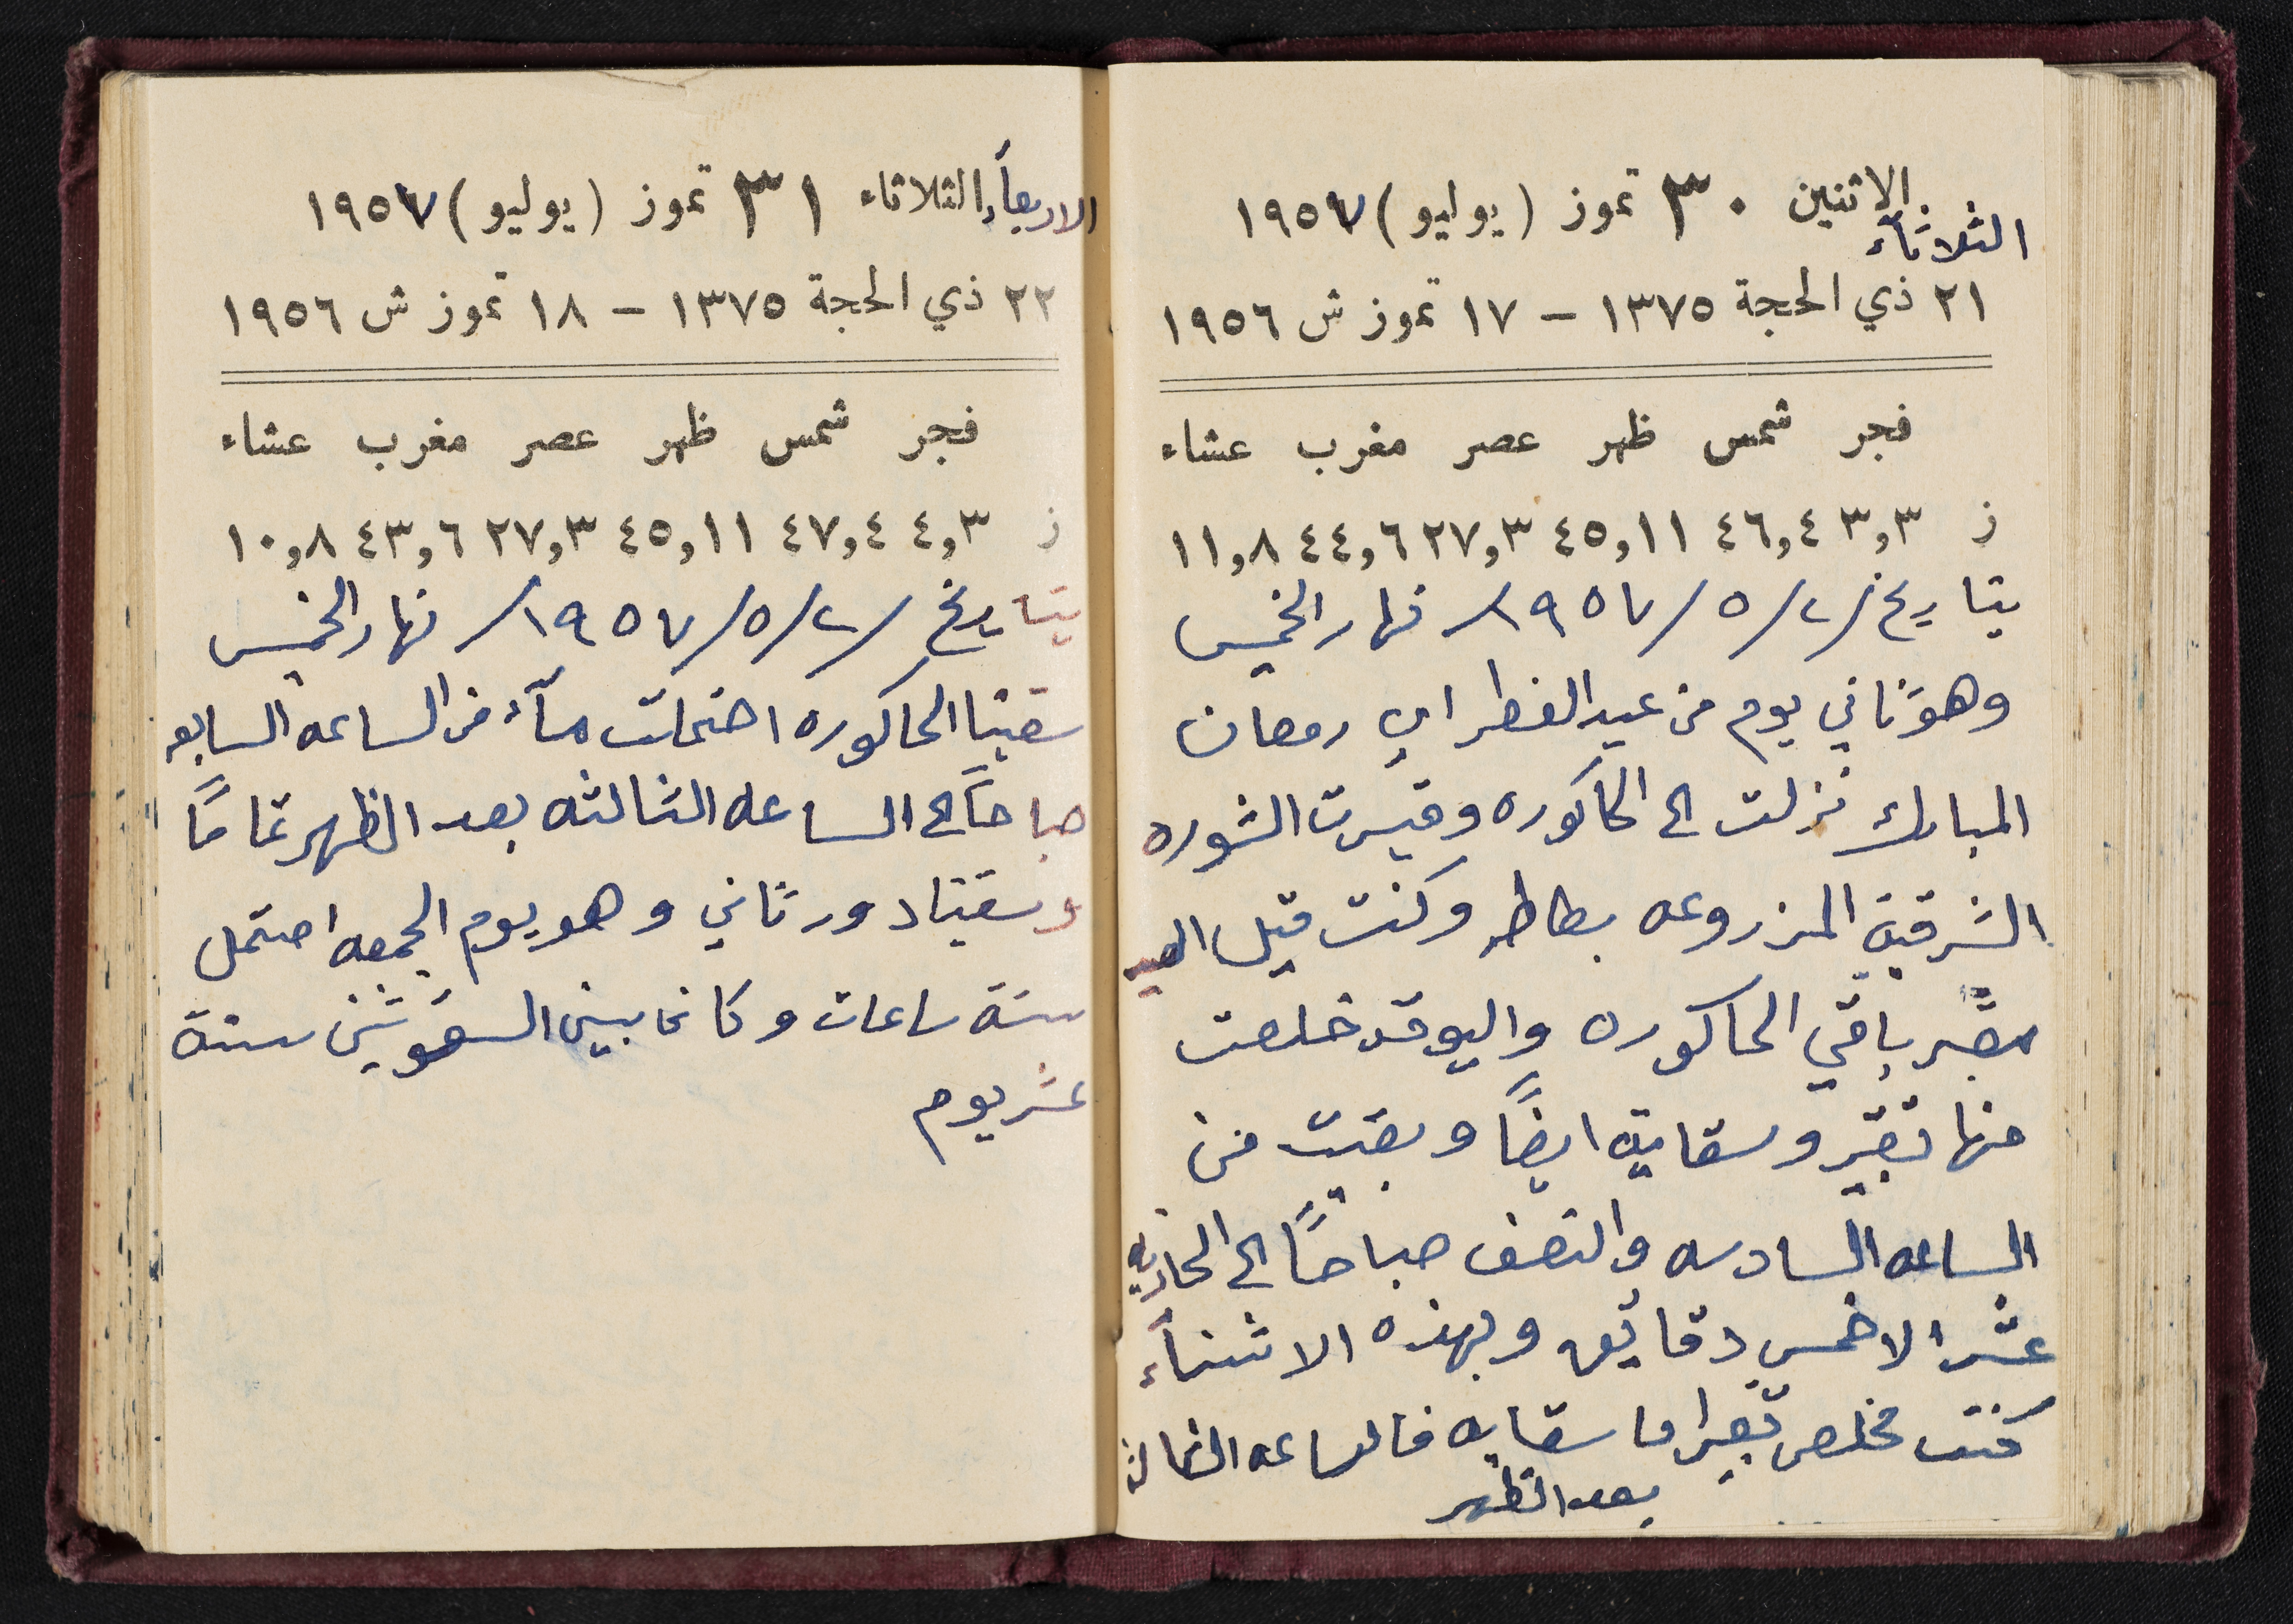 الاثنين ٣٠ تموز (يوليو) ١٩٥٧
الثلاثآء
٢١ ذي الحجة ١٣٧٥ – ١٧ تموز ش ١٩٥٦
فجر شمس ظهر عصر مغرب عشاء
ز ٣,٣ ٤٦,٤ ٤٥,١١ ٢٧,٣ ٤٤,٦ ١١,٨
بتاريخ /٢/٥/١٩٥٧/ نهار الخميس
وهو ثاني يوم من عيد الفطر اي رمضان
المبارك نزلت الى الحاكوره وقبرت الشوره
الشرقية المزروعه بطاطه وكنت قبل العيد
مقبر باقي الحاكوره واليوم قد خلصت
منها تقبير وسقاية ايضاً وبقيت من
الساعه السادسه والنصف صباحاً الى الحاديه
عشر الا خمس دقايق وبهذه الاثنآء
كنت مخلص تقبير اما سقايه فالساعه الثالثه
بعد الظهر
الاربعآء الثلاثاء ٣١ تموز (يوليو) ١٩٥٧
٢٢ ذي الحجة ١٣٧٥ – ١٨ تموز ش ١٩٥٦
فجر شمس ظهر عصر مغرب عشاء
ز ٤,٣ ٤٧,٤ ٤٥,١١ ٢٧,٣ ٤٣,٦ ١٠,٨
بتاريخ /٢/٥/١٩٥٧/ نهار الخميس
سقينا الحاكوره احتملت مآء من الساعه السابعه
صباحاً الى الساعه الثالثه بعد الظهر تماماً
وسقينا دور ثاني وهو يوم الجمعه احتمل
ستة ساعات وكان ما بين السقوتين ستة
عشر يوم